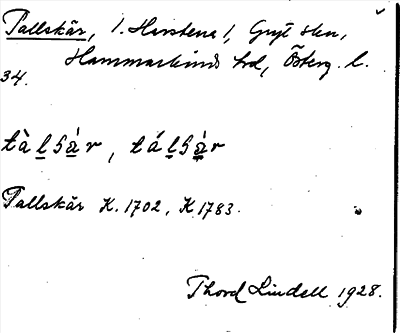 Tallskär, 1. Harstena 1, Gryt skn,
Hammarkinds hd, Österg. l.
34.
tàl̲sa̲̍r, tál̲sa̲̍r
Tallskär K. 1702, K 1783.
Thord Lindell 1928.